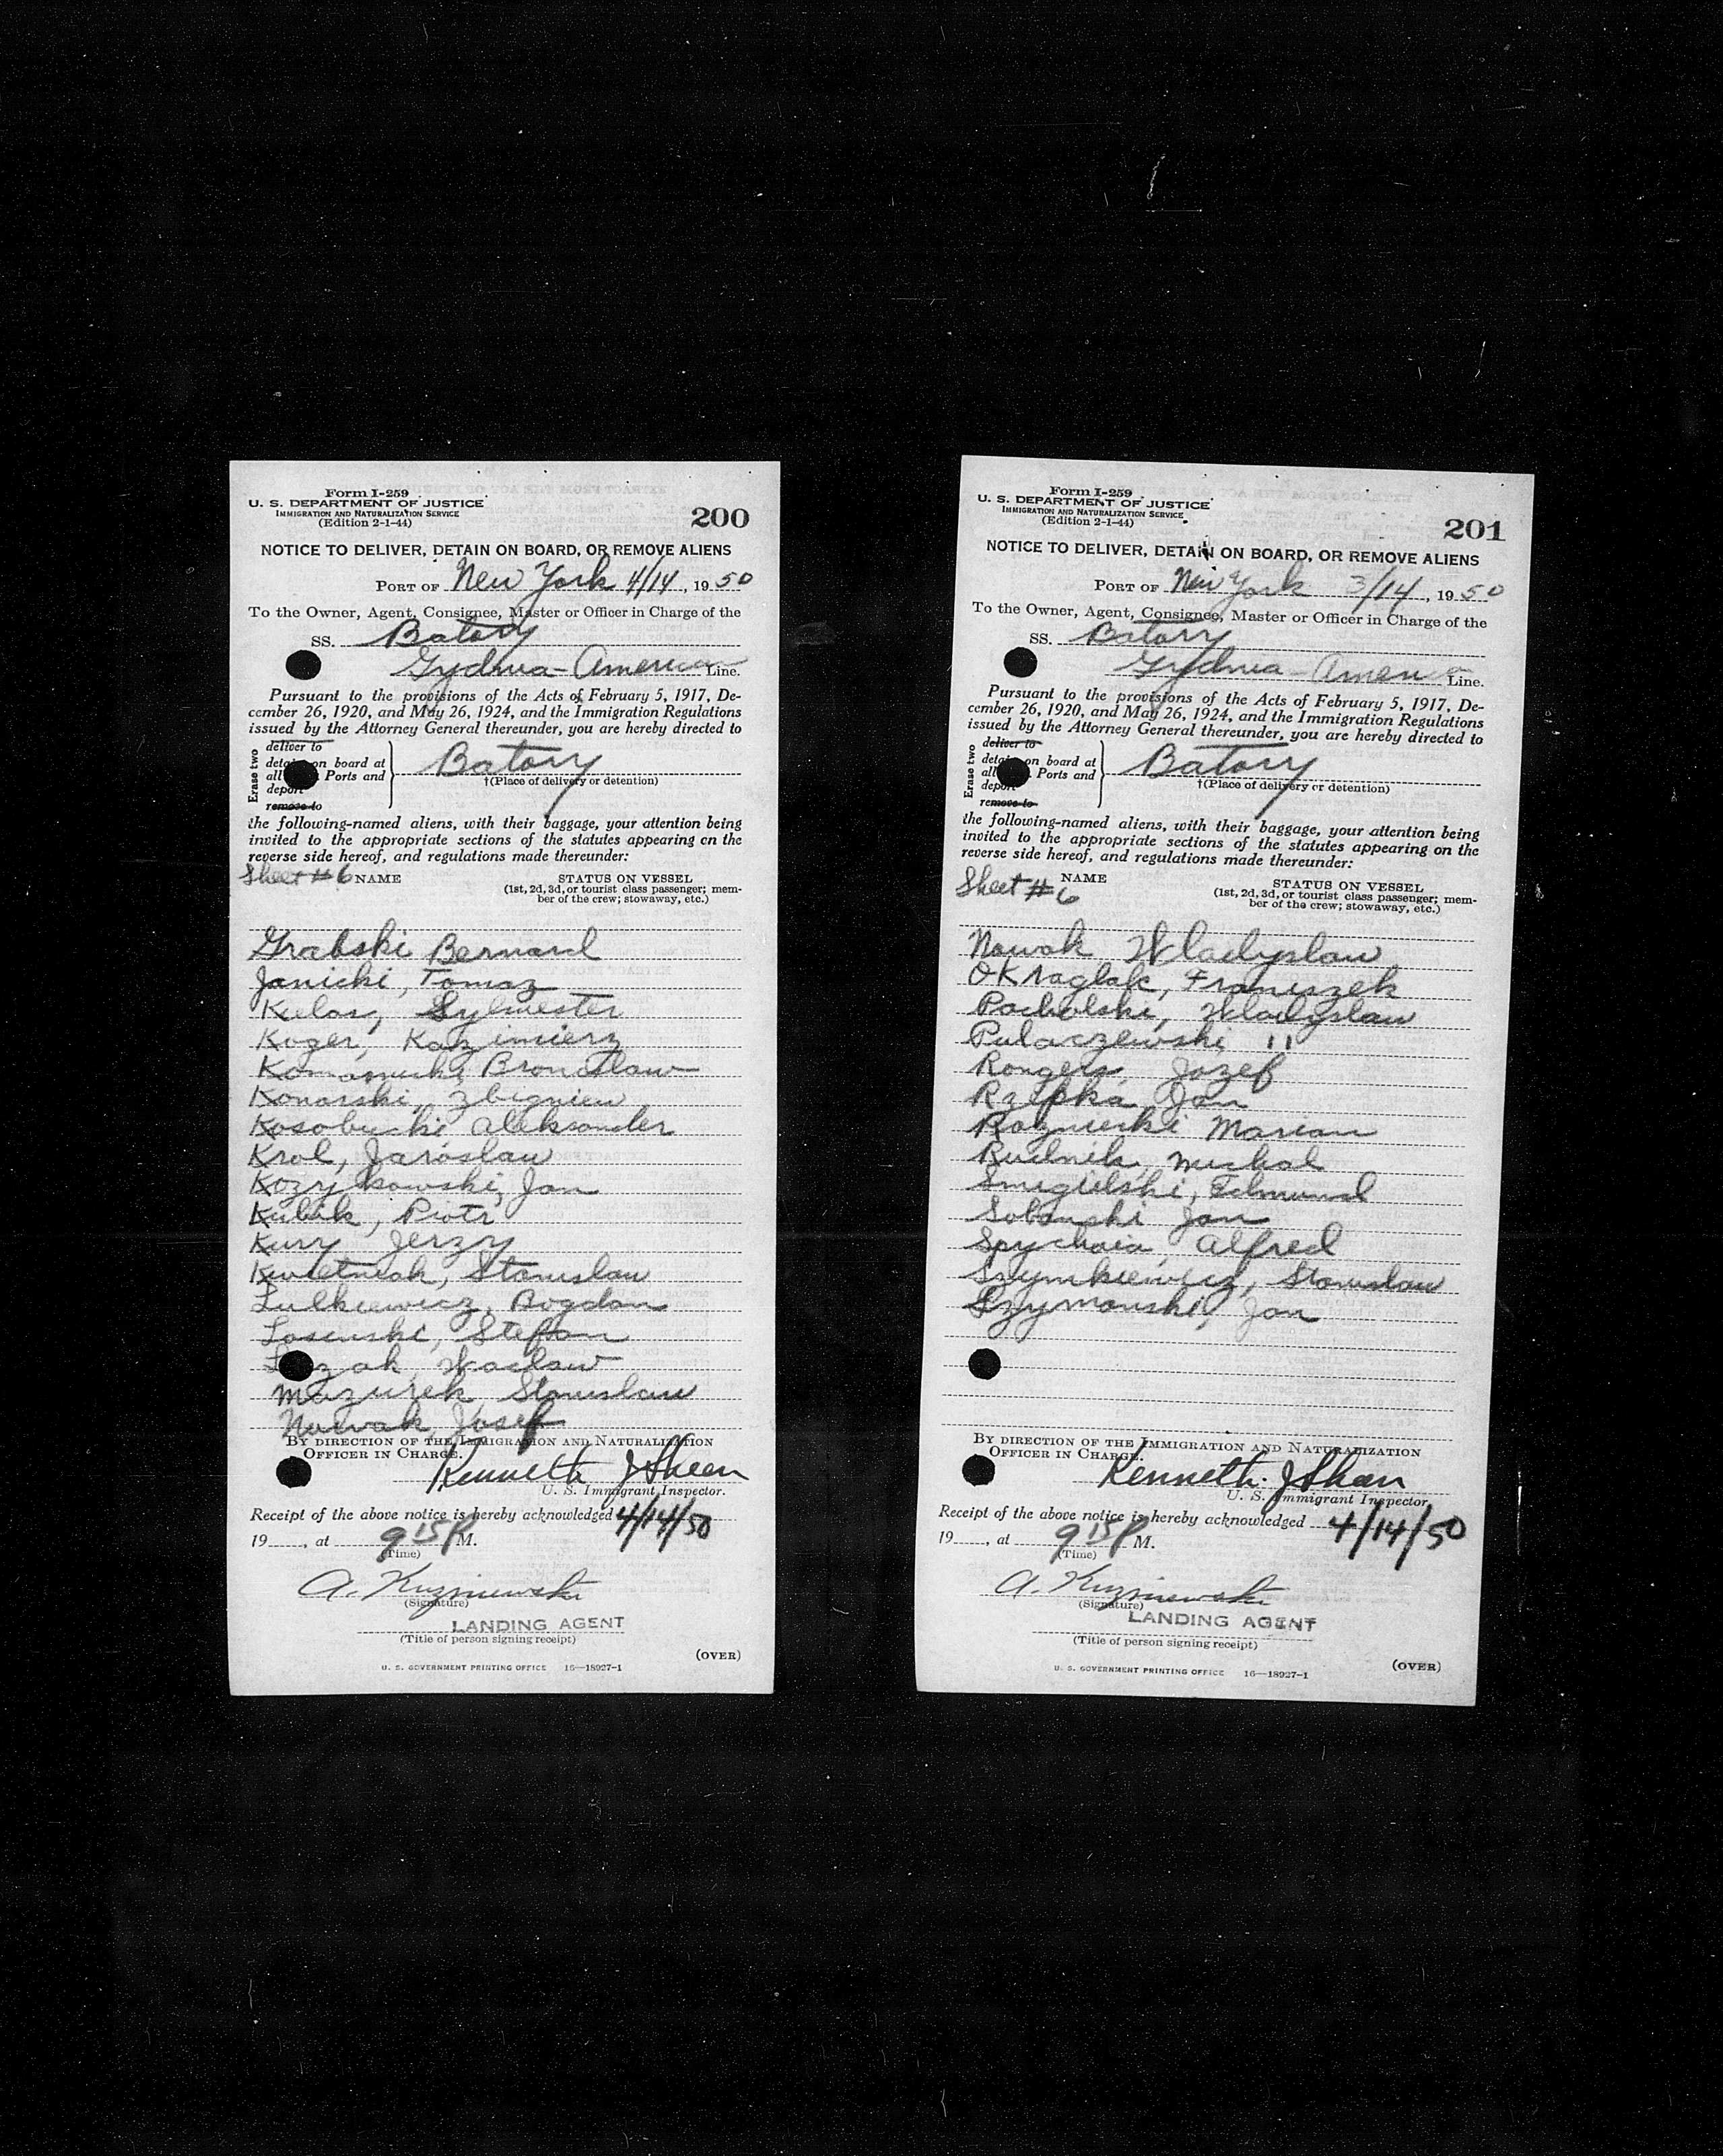 Form I-259
U. S. DEPARTMENT OF JUSTICE
IMMIGRATION AND NATURALIZATION SERVICE
(Edition 2-1-44)
200
NOTICE TO DELIVER, DETAIN ON BOARD, OR REMOVE ALIENS
PORT OF New York 4/14, 1950
To the Owner, Agent, Consignee, Master or Officer in Charge of the
SS. Batory
Gydnia-America Line.
Pursuant to the provisions of the Acts of February 5, 1917, De-
cember 26, 1920, and May 26, 1924, and the Immigration Regulations
issued by the Attorney General thereunder, you are hereby directed to
Erase two
deliver to
on board at
all Ports and
deport
remove to
Batory
†(Place of delivery or detention)
the following-named aliens, with their baggage, your attention being
invited to the appropriate sections of the statutes appearing on the
reverse side hereof, and regulations made thereunder:
Sheet #6 NAME
STATUS ON VESSEL
(1st, 2d, 3d, or tourist class passenger; mem-
ber of the crew; stowaway, etc.)
Grabski Bernard
Janicki, Tomaz
Kulas, Sylwester
Koger, Kazimierz
Bronislaw
Konarski, Zbigniew
Kosobucki Aleksander
Krol, Jaroslaw
Kozykowski, Jan
Kubik, Piotr
Kury Jerzy
Kwietniak, Stanislaw
Lulkiewicz, Bogdan
Losinski, Stefan
Waclaw
Mazurek Stanislaw
Nowak, Josef
BY DIRECTION OF THE IMMIGRATION AND NATURALIZATION
OFFICER IN CHARGE.
Kenneth J Sheen
U. S. Immigrant Inspector.
Receipt of the above notice is hereby acknowledged 4/14/50
19____, at 915 P M.
(Time)
A. Kuzniewski
(Signature)
LANDING AGENT
(Title of person signing receipt)
(OVER)
U. S. GOVERNMENT PRINTING OFFICE 16—18927-1
Form I-259
U. S. DEPARTMENT OF JUSTICE
IMMIGRATION AND NATURALIZATION SERVICE
(Edition 2-1-44)
201
NOTICE TO DELIVER, DETAIN ON BOARD, OR REMOVE ALIENS
PORT OF New York 3/14, 1950
To the Owner, Agent, Consignee, Master or Officer in Charge of the
SS. Batory
Gydnia-America Line.
Pursuant to the provisions of the Acts of February 5, 1917, De-
cember 26, 1920, and May 26, 1924, and the Immigration Regulations
issued by the Attorney General thereunder, you are hereby directed to
Erase two
deliver to
on board at
all Ports and
deport
remove to
Batory
†(Place of delivery or detention)
the following-named aliens, with their baggage, your attention being
invited to the appropriate sections of the statutes appearing on the
reverse side hereof, and regulations made thereunder:
Sheet #6 NAME
STATUS ON VESSEL
(1st, 2d, 3d, or tourist class passenger; mem-
ber of the crew; stowaway, etc.)
Nowak Wladyslaw
Okraglak, Franciszek
Pacholski, Wladyslaw
Pulaczewski "
Rongers, Jozef
Rzepka Jan
Roznierski Marian
Rudnik, Michal
Smigielski, Edmund
Sobanski Jan
Spychaia, Alfred
Szymkiewicz, Stanislaw
Szymanski, Jan
BY DIRECTION OF THE IMMIGRATION AND NATURALIZATION
OFFICER IN CHARGE.
Kenneth J Sheen
U. S. Immigrant Inspector.
Receipt of the above notice is hereby acknowledged 4/14/50
19____, at 915 P M.
(Time)
A. Kuzniewski
(Signature)
LANDING AGENT
(Title of person signing receipt)
(OVER)
U. S. GOVERNMENT PRINTING OFFICE 16—18927-1